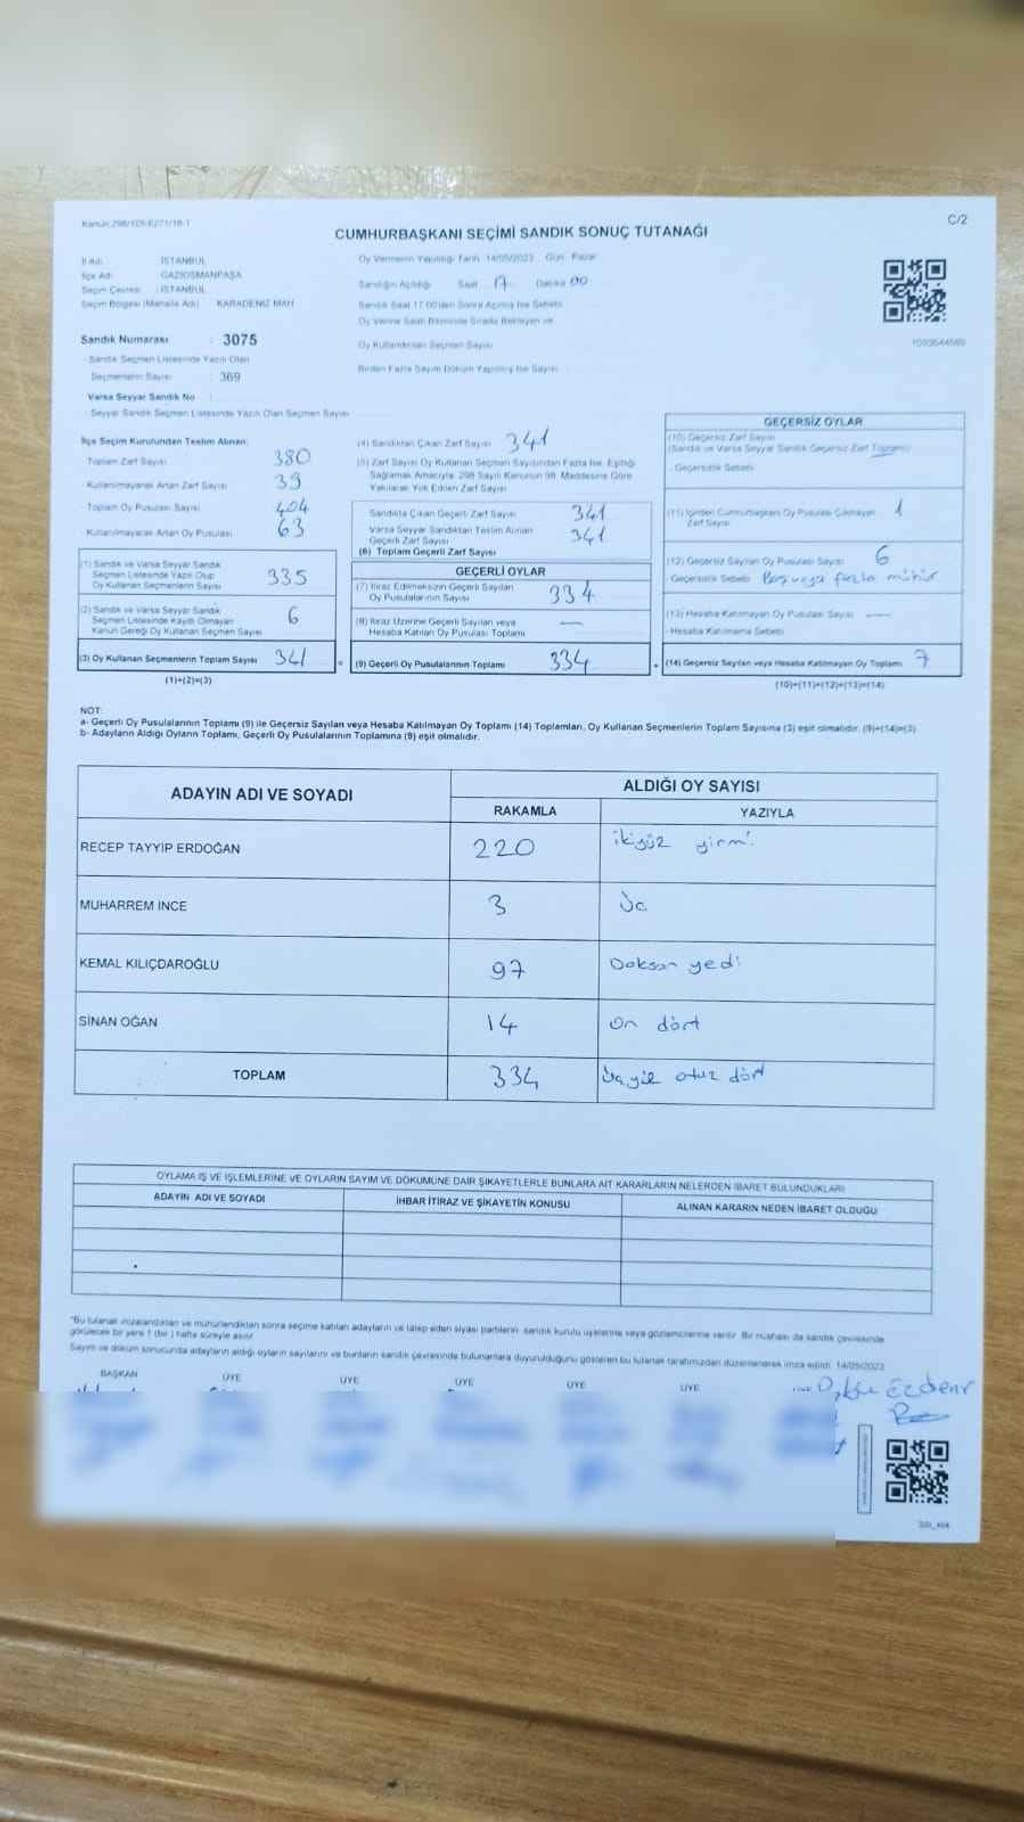 C/2
CUMHURBAŞKANI SEÇİMİ SANDIK SONUÇ TUTANAĞI
İl Adı : İSTANBUL
İlçe Adı : GAZİOSMANPAŞA
Seçim Çevresi : İSTANBUL
Seçim Bölgesi (Mahalle Adı) KARADENİZ MAH
Sandık Numarası : 3075
Sandık Seçmen Listesinde Yazılı Olan
Seçmenlerin Sayısı : 369
Varsa Seyyar Sandık No
Seyyar Sandık Seçmen Listesinde Yazılı Olan Seçmen Sayısı
Oy Vermenin Yapıldığı Tarih 14/05/2023 Gün Pazar
Sandığın Açıldığı Saat 17 Dakika 00
Sandık Saat 17.00'den Sonra Açılmış İse Sebebi
Oy Verme Saati Bitiminde Sırada Bekleyen ve
Oy Kullandırılan Seçmen Sayısı
Birden Fazla Sayım Döküm Yapılmış İse Sayısı
İlçe Seçim Kurulundan Teslim Alınan:
Toplam Zarf Sayısı 380
Kullanılmayarak Artan Zarf Sayısı 39
Toplam Oy Pusulası Sayısı 404
Kullanılmayarak Artan Oy Pusulası 63
(1) Sandık ve Varsa Seyyar Sandık
Seçmen Listesinde Yazılı Olup
Oy Kullanan Seçmenlerin Sayısı 335
(2) Sandık ve Varsa Seyyar Sandık
Seçmen Listesinde Kayıtlı Olmayan
Kanun Gereği Oy Kullanan Seçmen Sayısı 6
(3) Oy Kullanan Seçmenlerin Toplam Sayısı 341
(1)+(2)=(3)
(4) Sandıktan Çıkan Zarf Sayısı 341
(5) Zarf Sayısı Oy Kullanan Seçmen Sayısından Fazla İse, Eşitliği
Sağlamak Amacıyla 298 Sayılı Kanunun 98. Maddesine Göre
Yakılarak Yok Edilen Zarf Sayısı
Sandıkta Çıkan Geçerli Zarf Sayısı 341
Varsa Seyyar Sandıktan Teslim Alınan
Geçerli Zarf Sayısı 341
(6) Toplam Geçerli Zarf Sayısı
GEÇERLİ OYLAR
(7) İtiraz Edilmeksizin Geçerli Sayılan
Oy Pusulalarının Sayısı 334
(8) İtiraz Üzerine Geçerli Sayılan veya
Hesaba Katılan Oy Pusulası Toplamı —
(9) Geçerli Oy Pusulalarının Toplamı 334
GEÇERSİZ OYLAR
(10) Geçersiz Zarf Sayısı
(Sandık ve Varsa Seyyar Sandık Geçersiz Zarf Toplamı)
Geçersizlik Sebebi
(11) İçinden Cumhurbaşkanı Oy Pusulası Çıkmayan 1
Zarf Sayısı
(12) Geçersiz Sayılan Oy Pusulası Sayısı 6
Geçersizlik Sebebi Boş veya fazla mühür
(13) Hesaba Katılmayan Oy Pusulası Sayısı —
Hesaba Katılmama Sebebi
(14) Geçersiz Sayılan veya Hesaba Katılmayan Oy Toplamı 7
(10)+(11)+(12)+(13)=(14)
NOT:
a- Geçerli Oy Pusulalarının Toplamı (9) ile Geçersiz Sayılan veya Hesaba Katılmayan Oy Toplamı (14) Toplamları, Oy Kullanan Seçmenlerin Toplam Sayısına (3) eşit olmalıdır. (9)+(14)=(3)
b- Adayların Aldığı Oyların Toplamı, Geçerli Oy Pusulalarının Toplamına (9) eşit olmalıdır.
ADAYIN ADI VE SOYADI
ALDIĞI OY SAYISI
RAKAMLA YAZIYLA
RECEP TAYYİP ERDOĞAN 220 ikiyüz yirmi
MUHARREM İNCE 3 Üç
KEMAL KILIÇDAROĞLU 97 Doksan yedi
SİNAN OĞAN 14 On dört
TOPLAM 334 Üçyüz otuz dört
OYLAMA İŞ VE İŞLEMLERİNE VE OYLARIN SAYIM VE DÖKÜMÜNE DAİR ŞİKAYETLERLE BUNLARA AİT KARARLARIN NELERDEN İBARET BULUNDUKLARI
ADAYIN ADI VE SOYADI İHBAR İTİRAZ VE ŞİKAYETİN KONUSU ALINAN KARARIN NEDEN İBARET OLDUĞU
*Bu tutanak imzalandıktan ve mühürlendikten sonra seçime katılan adayların ve talep eden siyasi partilerin sandık kurulu üyelerine veya gözlemcilerine verilir. Bir nüshası da sandık çevresinde
görülecek bir yere 1 (bir) hafta süreyle asılır
Sayım ve döküm sonucunda adayların aldığı oyların sayılarını ve bunların sandık çevresinde bulunanlara duyurulduğunu gösteren bu tutanak tarafımızdan düzenlenerek imza edildi. 14/05/2023
BAŞKAN ÜYE ÜYE ÜYE ÜYE ÜYE